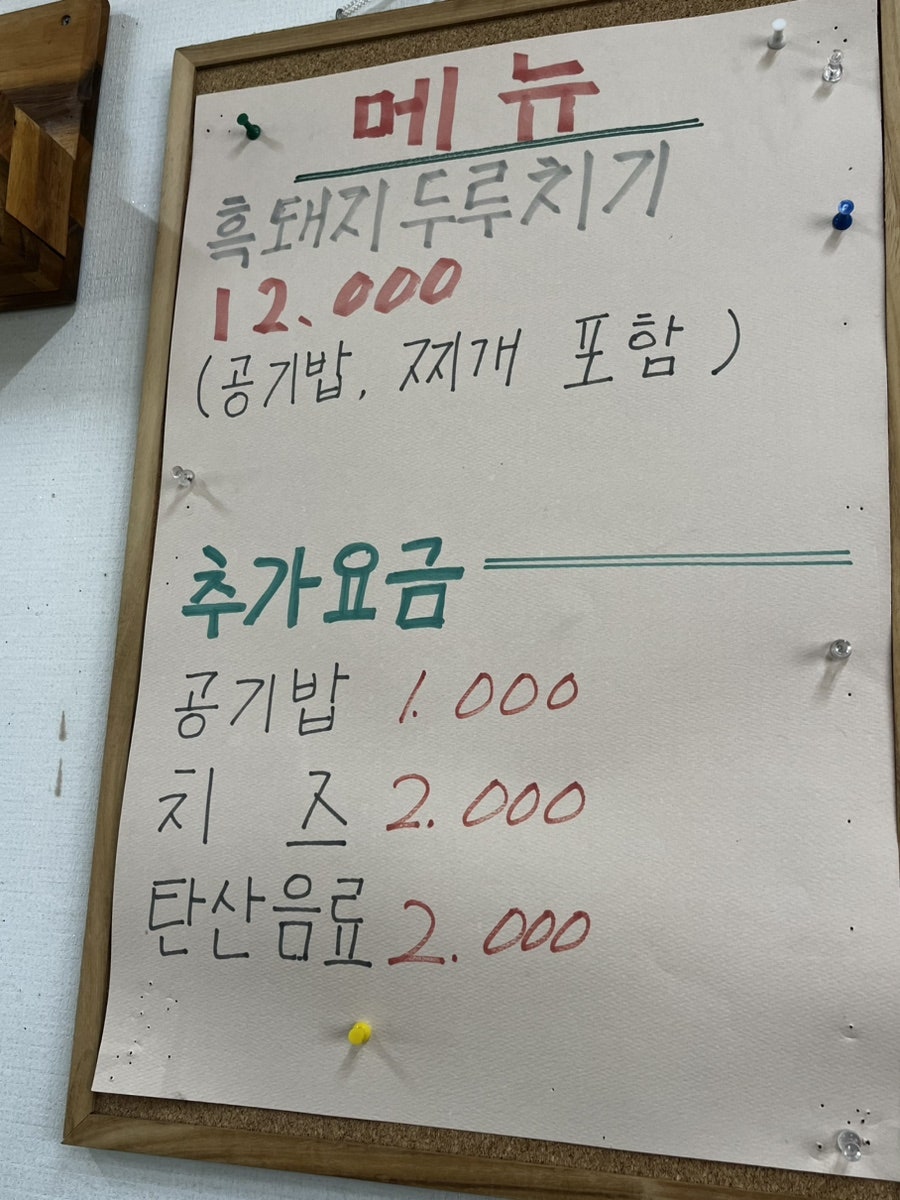 메뉴
흑돼지두루치기
12.000
(공기밥, 찌개 포함)
추가요금
공기밥 1.000
치 즈 2.000
탄산음료 2.000